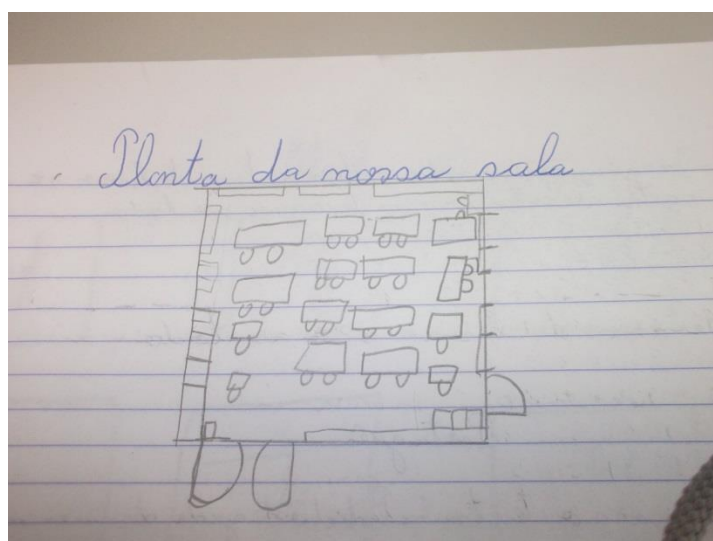 Planta da nossa sala